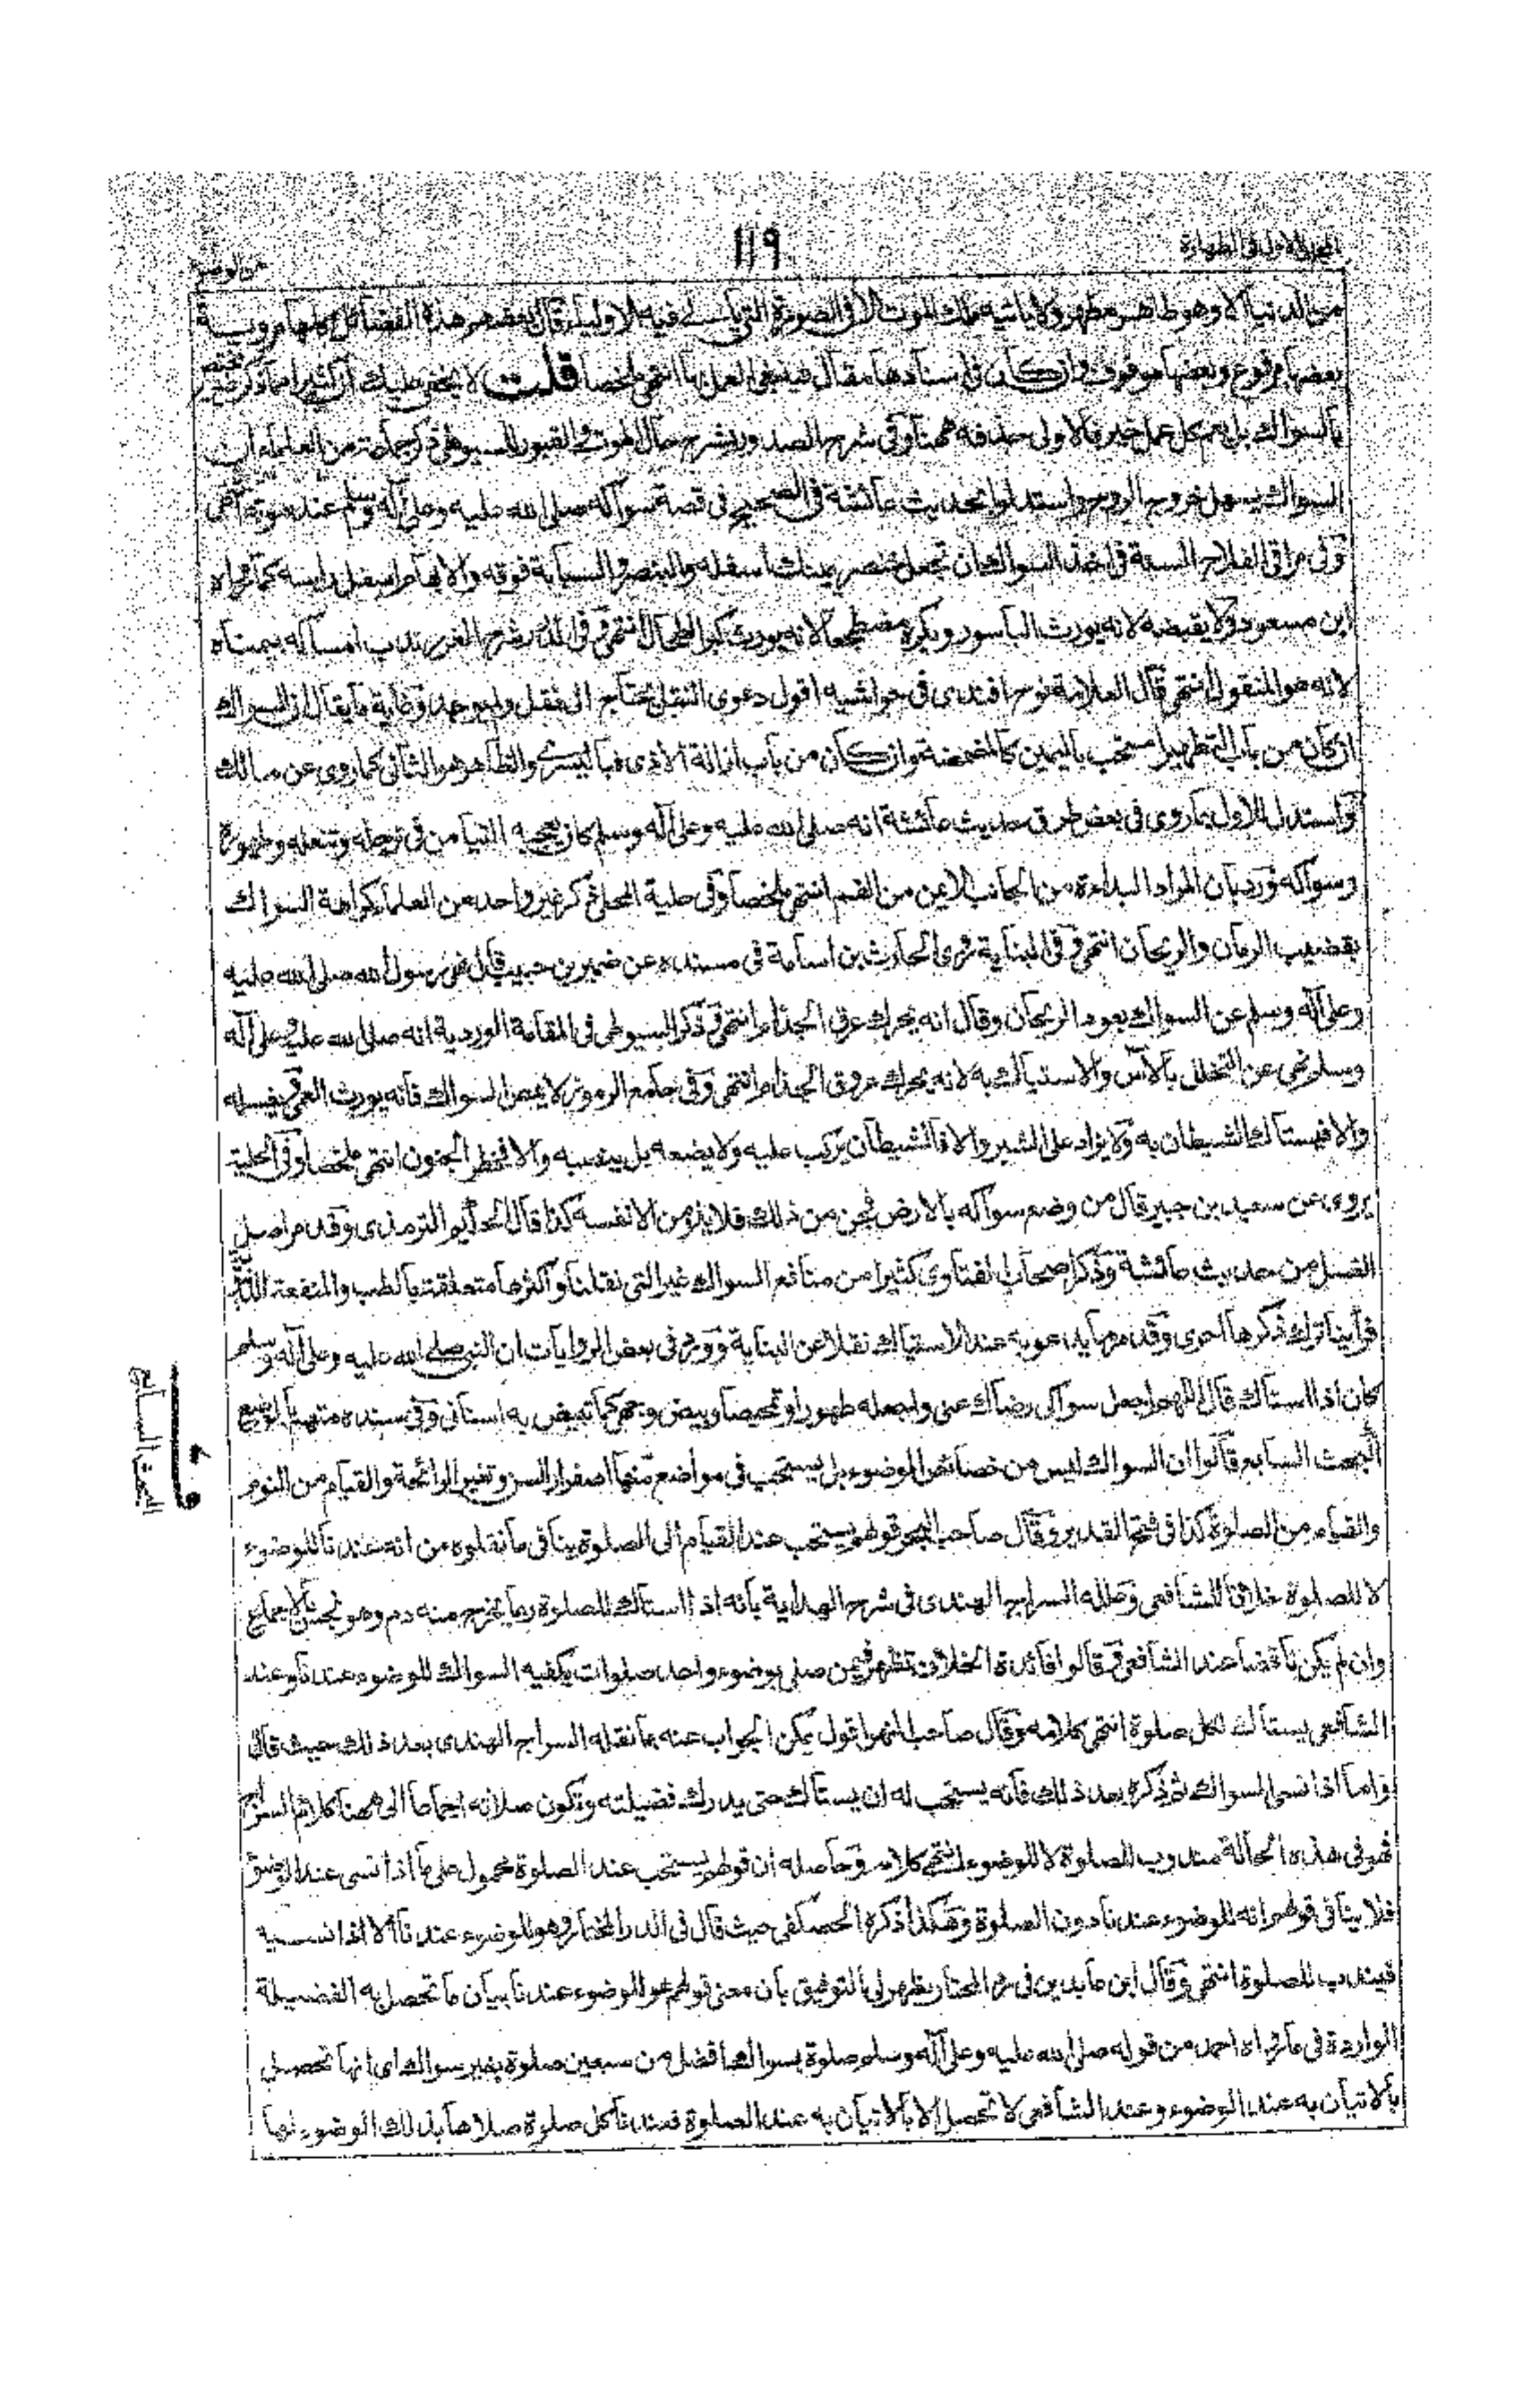 ١١٩
من الدنيا الا وهو طاهر مطهر ولا ياتيه ملك الموت الا في الصورة التي ياتي فيه الاولياء قال بعضهم هذه الفضائل كلها مروية
بعضها مرفوع وبعضها موقوف وان كان في اسنادها مقال فينبغي العمل بها انتهى ملخصا قلت لا يخفى عليك ان كثيرا مما ذكر
بالسواك بل يعم كل عمل خير فالاولى حذفه ههنا وفي شرح الصدور بشرح حال الموتى والقبور للسيوطي ذكر جماعة من العلماء ان
السواك يسهل خروج الروح واستدلوا بحديث عائشة في الصحيح في قصة سواكه صلى الله عليه وعلى آله وسلم عند موته انتهى
وفي مراقي الفلاح السنة في اخذ السواك ان تجعل خنصر يمينك اسفله والبنصر والسبابة فوقه والابهام اسفل راسه كما رواه
ابن مسعود ولا يقبضه لانه يورث الباسور ويكره مضطجعا لانه يورث كبر الطحال انتهى وفي الدرر شرح الغرر يندب امساكه بيمناه
لانه هو المنقول انتهى قال العلامة نوح افندي في حواشيه اقول دعوى النقل تحتاج الى نقل ولم يوجد وغاية ما يقال ان السواك
ان كان من باب التطهير استحب باليمين كالمضمضة وان كان من باب ازالة الاذى فباليسرى والظاهر هو الثاني كما روى عن مالك
واستدل للاول بما روى في بعض طرق حديث عائشة انه صلى الله عليه وعلى آله وسلم كان يعجبه التيامن في ترجله وتنعله وطهوره
وسواكه ورد بان المراد البداءة من الجانب الايمن من الفم انتهى ملخصا وفي حلية المحلي ذكر غير واحد من العلماء كراهة السواك
بقضيب الرمان والريحان انتهى وفي البناية روى الحارث بن اسامة في مسنده عن ضمير بن حبيب قال نهى رسول الله صلى الله عليه
وعلى آله وسلم عن السواك بعود الريحان وقال انه يحرك عرق الجذام انتهى وذكر السيوطي في المقامة الوردية انه صلى الله عليه وعلى آله
وسلم نهى عن التخلل بالآس والاستياك به لانه يحرك عروق الجذام انتهى وفي جامع الرموز لا يمص السواك فانه يورث العمى يغسله
والا فيستاك الشيطان به ولا يزاد على الشبر والا فالشيطان يركب عليه ولا يضعه بل ينصبه والا فخطر الجنون انتهى ملخصا وفي الحلية
يروى عن سعيد بن جبير قال من وضع سواكه بالارض فجن من ذلك فلا يلومن الا نفسه كذا قال الحكيم الترمذي وقد مر اصل
الغسل من حديث عائشة وذكر اصحاب الفتاوى كثيرا من منافع السواك غير التي نقلنا واكثرها متعلقة بالطب والمنفعة
فراينا ترك ذكرها احرى وقد مر ما يدعو به عند الاستياك نقلا عن البناية وورد في بعض الروايات ان النبي صلى الله عليه وعلى آله وسلم
كان اذا استاك قال اللهم اجعل سواكي رضاك عني واجعله طهورا وتمحيصا وبيض وجهي كما تبيض به اسناني وفي سنده متهم بالوضع
البحث السابع قالوا ان السواك ليس من خصائص الوضوء بل يستحب في مواضع منها اصفرار السن وتغير الرائحة والقيام من النوم
والقيام من الصلوة كذا في فتح القدير وقال صاحب البحر قولهم يستحب عند القيام الى الصلوة ينافي ما نقلوه من انه عندنا للوضوء
لا للصلوة خلافا للشافعي وعلله السراج الهندي في شرح الهداية بانه اذا استاك للصلوة ربما يخرج منه دم وهو نجس بالاجماع
وان لم يكن ناقضا عند الشافعي وقالوا فائدة الخلاف تظهر فيمن صلى بوضوء واحد صلوات يكفيه السواك للوضوء عندنا وعند
الشافعي يستاك لكل صلوة انتهى كلامه وقال صاحب النهر اقول يمكن الجواب عنه بما نقله السراج الهندي بعد ذلك حيث قال
واما اذا نسي السواك ثم ذكره بعد ذلك فانه يستحب له ان يستاك حتى يدرك فضيلته وتكون صلاته اجماعا الى ههنا كلام السراج
فهو في هذه الحالة مندوب للصلوة لا للوضوء انتهى كلامه وحاصله ان قولهم يستحب عند الصلوة محمول على ما اذا نسي عند الوضوء
فلا ينافي قولهم انه للوضوء عندنا دون الصلوة وهكذا ذكره الحصكفي حيث قال في الدر المختار وهو للوضوء عندنا الا اذا نسيه
فيندب للصلوة انتهى وقال ابن عابدين في رد المحتار يظهر لي التوفيق بان معنى قولهم هو للوضوء عندنا بيان ما تحصل به الفضيلة
الواردة في ما رواه احمد من قوله صلى الله عليه وعلى آله وسلم صلوة بسواك افضل من سبعين صلوة بغير سواك اي انها تحصل
بالاتيان به عند الوضوء وعند الشافعي لا تحصل الا بالاتيان به عند الصلوة فعندنا كل صلوة صلاها بذلك الوضوء لها
البحث السابع